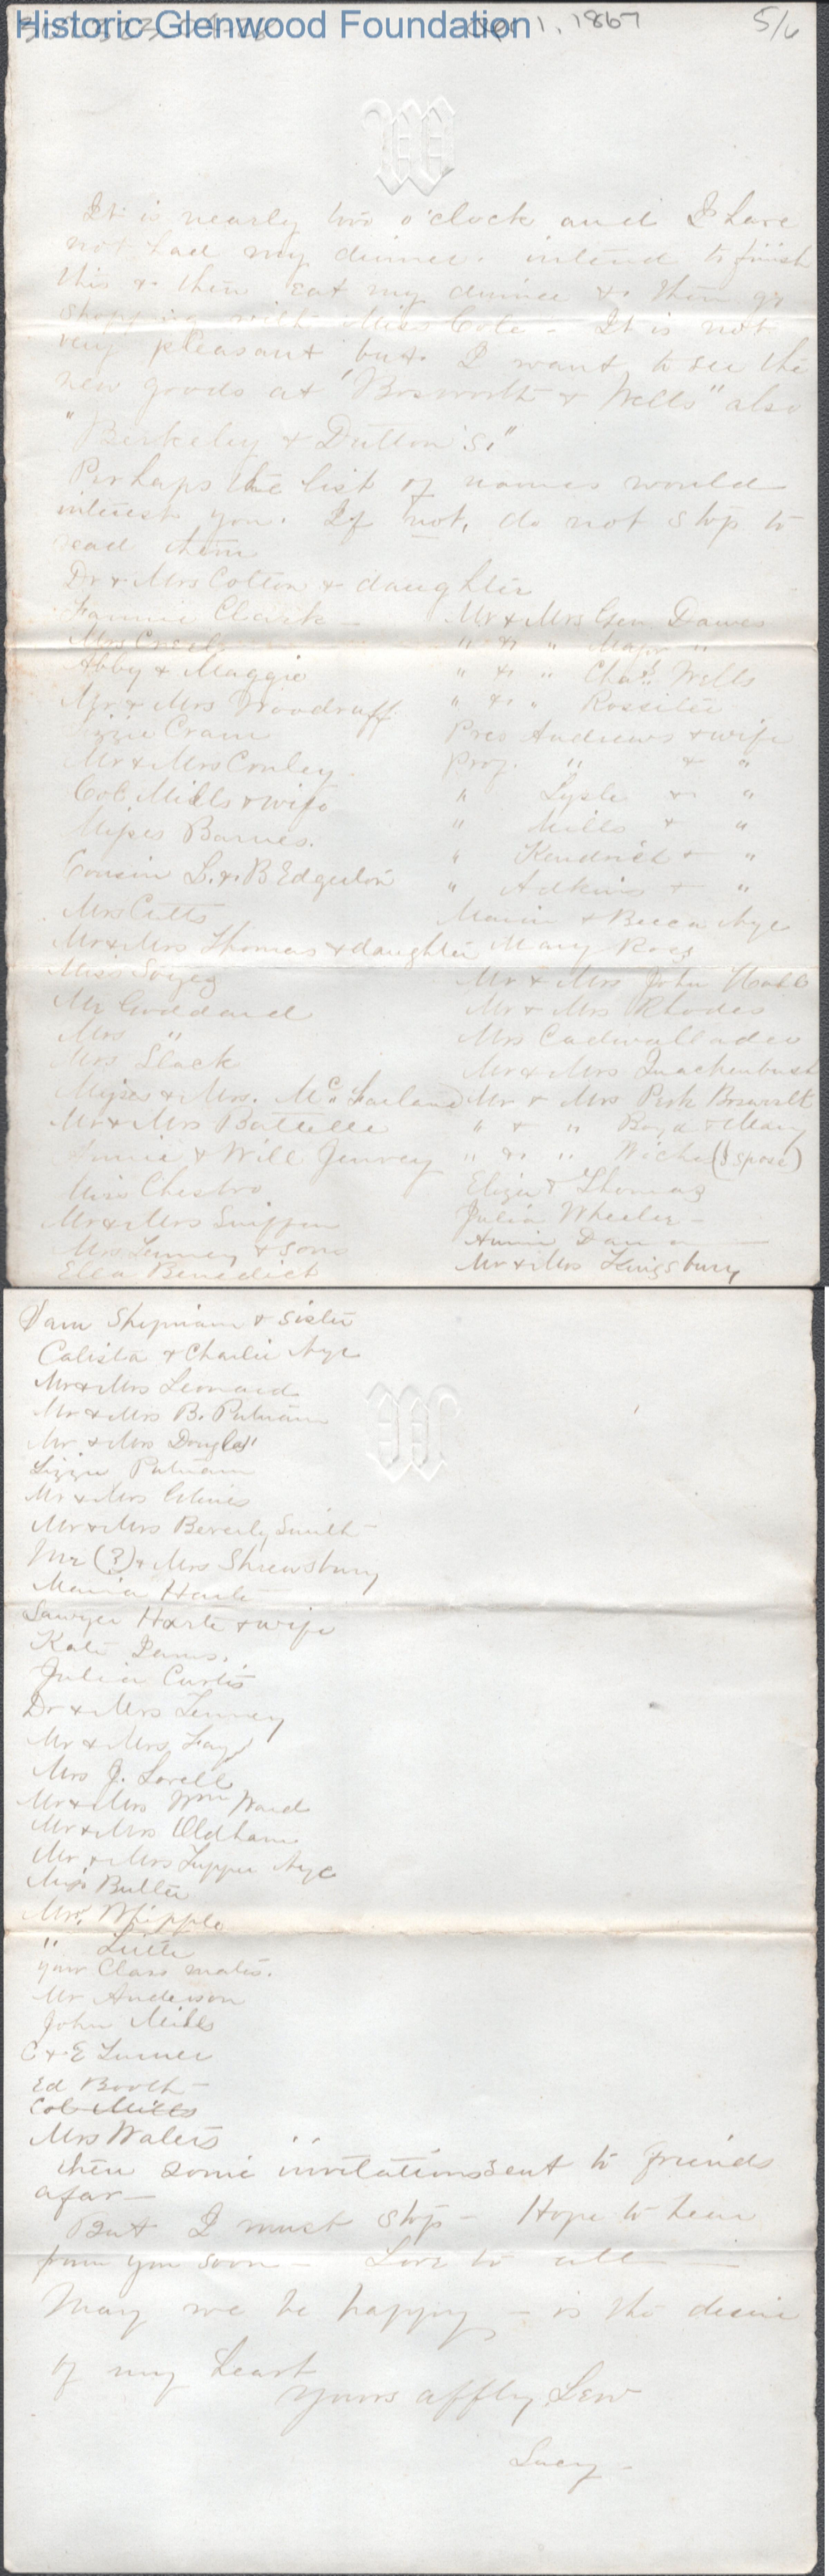 Historic Glenwood Foundation
1, 1867
5/6
W
It is nearly two o'clock and I have
not had my dinner. intend to finish
this & then eat my dinner & then go
shopping with Miss Cole - It is not
very pleasant but I want to see the
new goods at "Bosworth & Wells" also
"Berkeley & Dutton's."
Perhaps the list of names would
interest you. If not, do not stop to
read them
Dr & Mrs Cotton & daughter
Fannie Clark -
Mrs
Abby & Maggie
Mr & Mrs Woodruff
Lizzie Cram
Mr & Mrs Conley.
Col. Mills & wife
Misses Barnes.
Cousin L. & B Edgerton
Mrs Cutts
Mr & Mrs Thomas & daughter
Miss
Mr Goddard
Mrs "
Mrs Slack
Misses & Mrs. McFarland
Mr & Mrs Battelle
& Will Jenvey
Miss Chesbro
Mr & Mrs
Mrs Tenney & sons
Ella Benedict
Mr & Mrs Gen Dawes
" & " Major "
" & " Chas. Wells
" & " Rossiter
Pres Andrews & wife
Prof. " & "
" & "
" Mills & "
" Kendrick & "
" Adkins & "
& Becca Nye
Mary Ross
Mr & Mrs John Hall
Mr & Mrs Rhodes
Mrs Cadwallader
Mr & Mrs Quackenbush
Mr & Mrs Perk Bosworth
" & " & Mary
" & " (I spose)
Eliza & Thomas
Julia Wheeler -
Annie
Mr & Mrs Kingsbury
Sam Shipman & sister
Calista & Charlie Nye
Mr & Mrs Leonard
Mr & Mrs B. Putnam
Mr & Mrs Douglas
Lizzie Putnam
Mr & Mrs
Mr & Mrs Beverly Smith -
Mr (?) & Mrs Shrewsbury
Maria Harte
Sawyer Harte & wife
Kate
Julia Curtis
Dr & Mrs Tenney
Mr & Mrs Fay
Mrs J. Lovell
Mr & Mrs Wm Ward
Mr & Mrs Oldham
Mr & Mrs Tupper Nye
Miss Butler
Mrs. Whipple
"
your Class mates.
Mr Anderson
John Mills
C & E Turner
Ed Booth -
Col Mills
Mrs Waters
then some invitations sent to friends
afar -
But I must stop - Hope to hear
from you soon - Love to all -
May we be happy - is the desire
of my heart
Yours affly, Lew
Lucy -